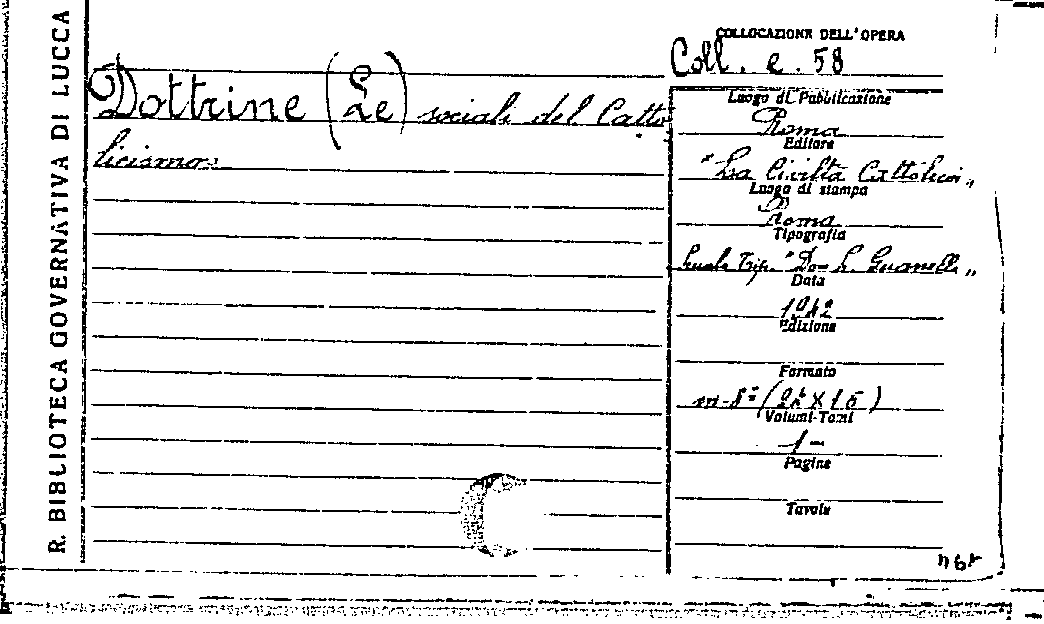 R. BIBLIOTECA GOVERNATIVA DI LUCCA
Dottrine (Le) sociali del Catto
licismo
COLLOCAZIONE DELL'OPERA
Coll. e. 58
Luogo di Pubblicazione
Roma
Editore
"La Civiltà Cattolica"
Luogo di stampa
Roma
Tipografia
Scuola Tip. "Don L. Guanella"
Data
1942
Edizione
Formato
in-8° (22 X 15)
Volumi-Tomi
1-
Pagine
Tavole